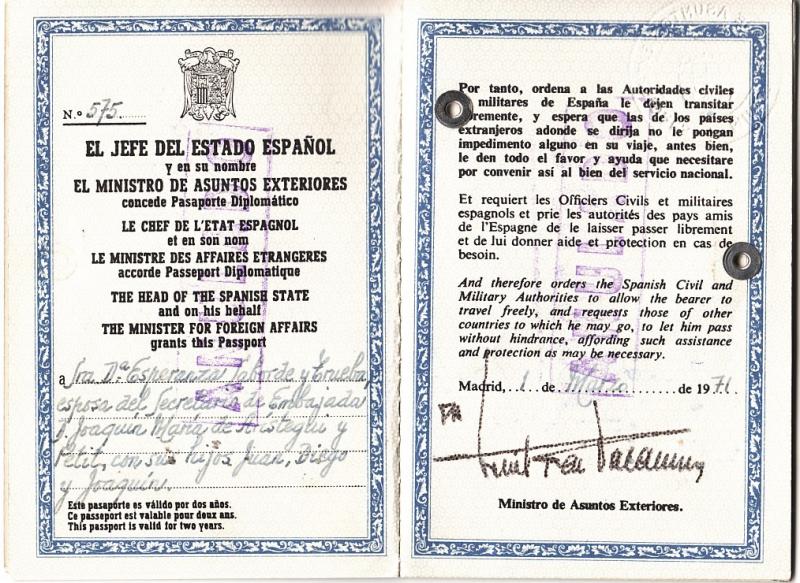 N.º 575.
EL JEFE DEL ESTADO ESPAÑOL
y en su nombre
EL MINISTRO DE ASUNTOS EXTERIORES
concede Pasaporte Diplomático
LE CHEF DE L'ETAT ESPAGNOL
et en son nom
LE MINISTRE DES AFFAIRES ETRANGERES
accorde Passeport Diplomatique
THE HEAD OF THE SPANISH STATE
and on his behalf
THE MINISTER FOR FOREIGN AFFAIRS
grants this Passport
a Sra Dª Esperanza Taborde y Trueba,
esposa del Secretario de Embajada
D. Joaquín María de Aristegui y
Petit, con sus hijos Juan, Diego
y Joaquín.
Este pasaporte es válido por dos años.
Ce passeport est valable pour deux ans.
This passport is valid for two years.
ANULADO
Por tanto, ordena a las Autoridades civiles
militares de España le dejen transitar
bremente, y espera que las de los países
extranjeros adonde se dirija no le pongan
impedimento alguno en su viaje, antes bien,
le den todo el favor y ayuda que necesitare
por convenir así al bien del servicio nacional.
Et requiert les Officiers Civils et militaires
espagnols et prie les autorités des pays amis
de l'Espagne de le laisser passer librement
et de lui donner aide et protection en cas de
besoin.
And therefore orders the Spanish Civil and
Military Authorities to allow the bearer to
travel freely, and requests those of other
countries to which he may go, to let him pass
without hindrance, affording such assistance
and protection as may be necessary.
Madrid, 1 de Marzo de 1971.
Ministro de Asuntos Exteriores.
ANULADO